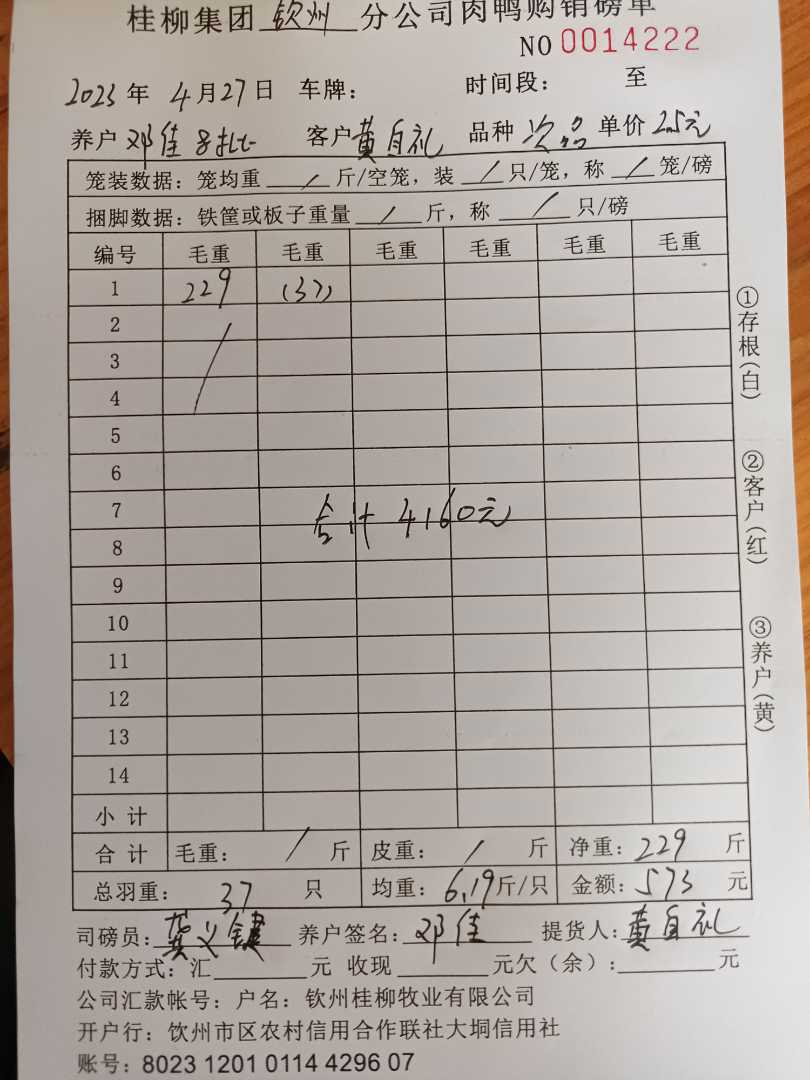 桂柳集团 钦州 分公司肉鸭购销磅单
NO 0014222
2023年 4月27日 车牌: 时间段: 至
养户 邓佳 客户 黄自礼 品种 次品 单价 2.5元
笼装数据:笼均重 / 斤/空笼,装 / 只/笼,称 / 笼/磅
捆脚数据:铁筐或板子重量 / 斤,称 / 只/磅
编号 毛重 毛重 毛重 毛重 毛重 毛重
1 229 (37)
2
3
4
5
6
7
合计 4160元
8
9
10
11
12
13
14
小计
合计 毛重: / 斤 皮重: / 斤 净重:229 斤
总羽重: 37 只 均重:6.19斤/只 金额:573 元
司磅员:黄义键 养户签名:邓佳 提货人:黄自礼
付款方式:汇 元 收现 元欠(余): 元
公司汇款帐号:户名:钦州桂柳牧业有限公司
开户行:钦州市区农村信用合作联社大垌信用社
账号:8023 1201 0114 4296 07
①存根(白)
②客户(红)
③养户(黄)